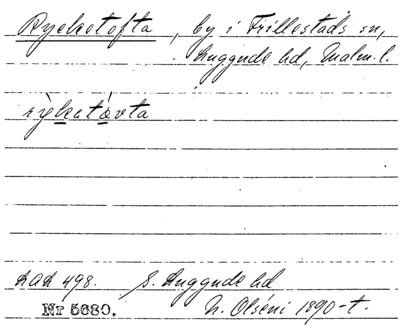 Ryeketofta, by i Frillestads sn,
Luggude hd, Malm. l.
rỳkatåvta
LAL 498. S. Luggude hd
Nr 5680. N. Olséni 1890-t.